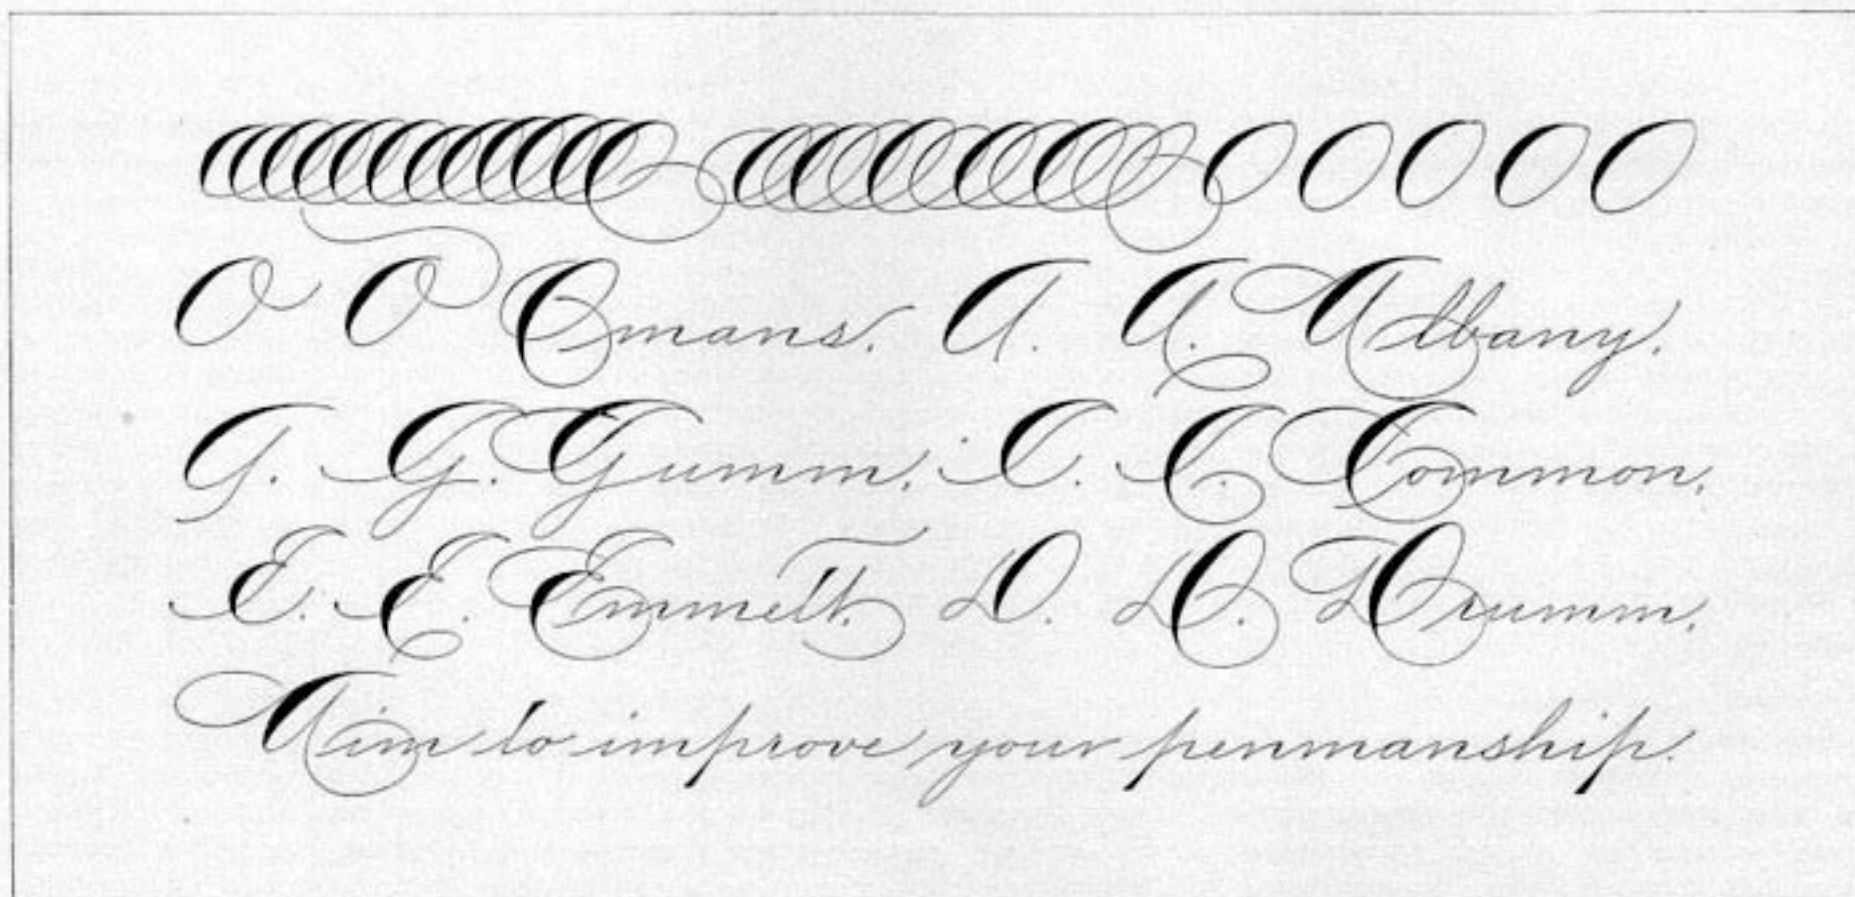 O O O O O
O O Omans. A. A. Albany.
G. G. Gumm. C. C. Common.
E. E. Emmett. D. D. Drumm.
Aim to improve your penmanship.